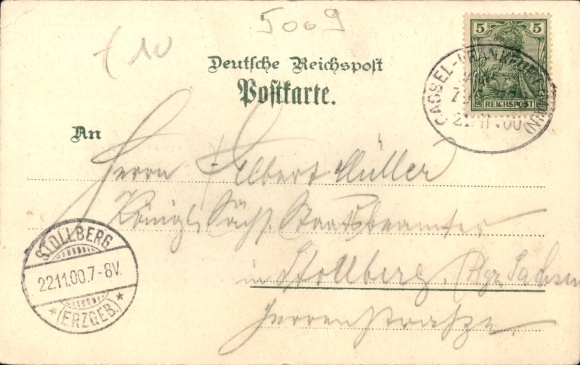 5009
£ 10
Deutsche Reichspost
Postkarte.
5 5
REICHSPOST
CASSEL-FRANKFURT
21.11.00
An
Herrn Albert Müller
Königl. Sächs. Staatsbeamter
in Stollberg, Kgr. Sachsen
Herrenstraße.
STOLLBERG
22.11.00.7-8V.
*(ERZGEB.)*